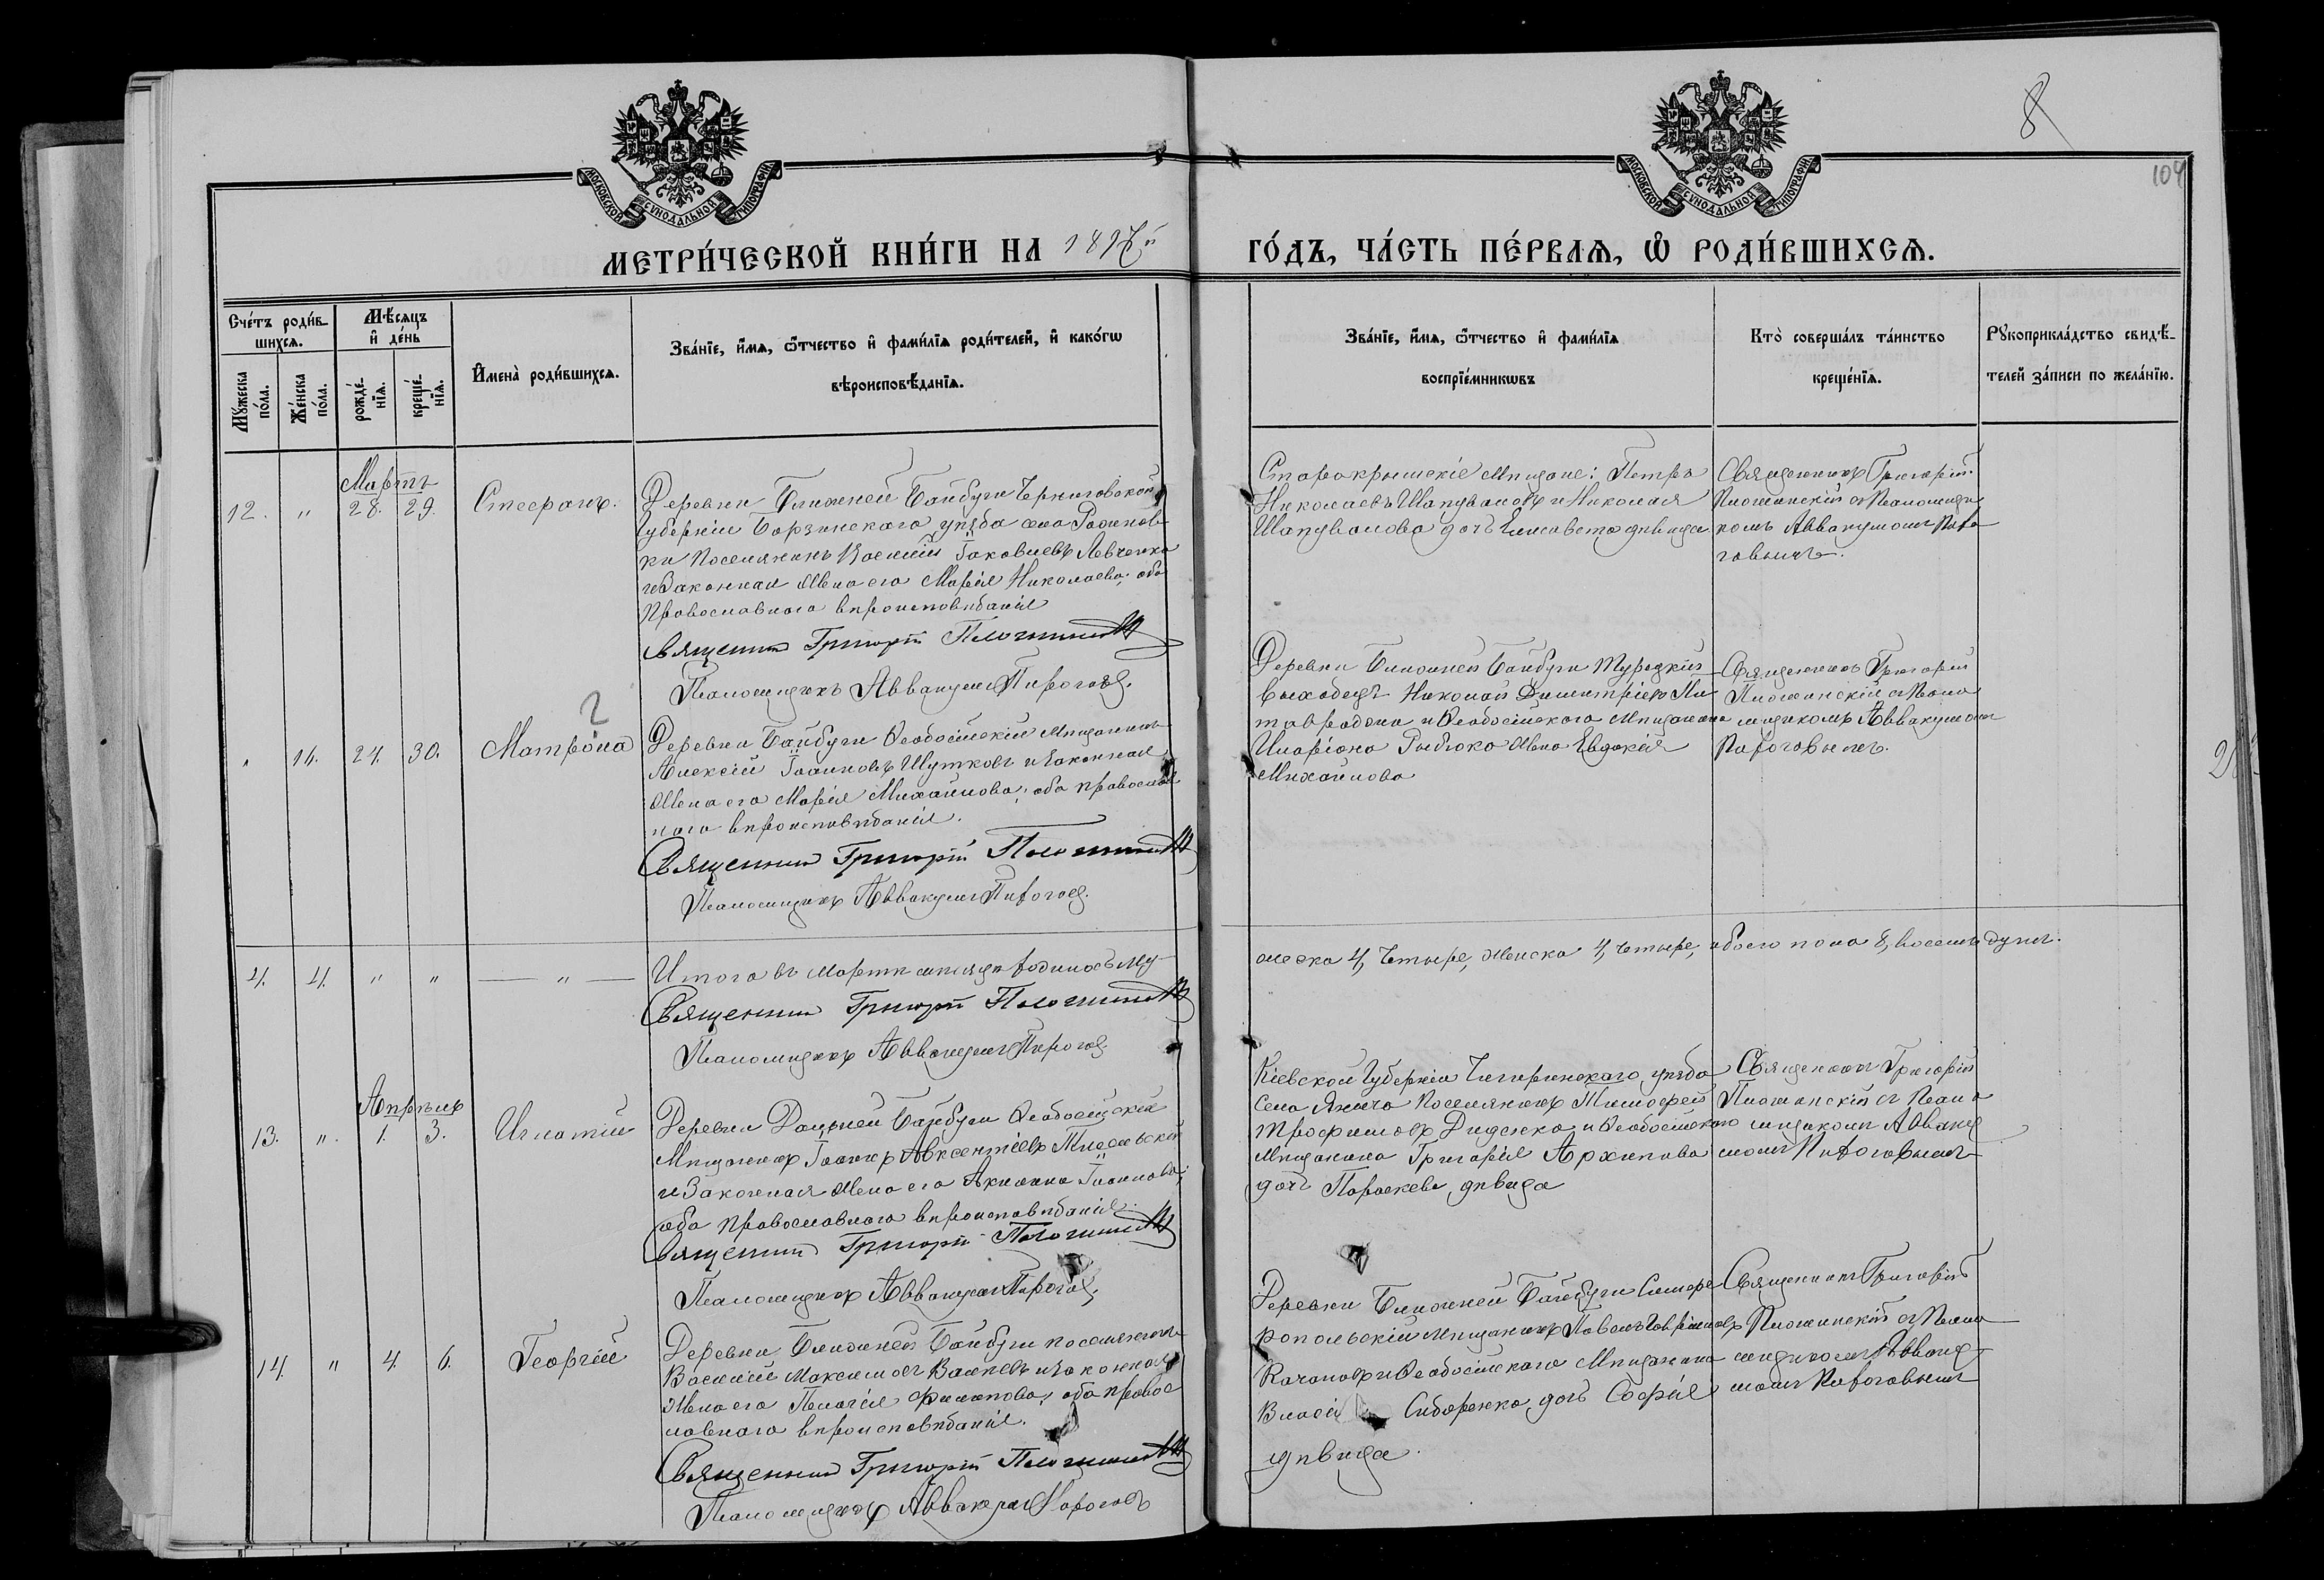 8
104
МОСКОВСКОЙ СѴНОДАЛЬНОЙ ТИПОГРАФІИ
МОСКОВСКОЙ СѴНОДАЛЬНОЙ ТИПОГРАФІИ
МЕТРИ́ЧЕСКОЙ КНИ́ГИ НА 1897й ГО́ДЪ, ЧА́СТЬ ПЕ́РВАѦ, Ѡ҆ РОДИ́ВШИХСѦ.
Сче́тъ роди́в-
шихсѧ.
Мꙋжеска по́ла.
Же́нска по́ла.
Мѣ́сѧцъ
и҆ де́нь
рожде́-
нїѧ.
креще́-
нїѧ.
И҆мена̀ роди́вшихсѧ.
Зва́нїе, и҆́мѧ, ѻ҆́тчество и҆ фами́лїѧ роди́телей, и҆ како́гѡ
вѣроисповѣ́данїѧ.
Зва́нїе, и҆́мѧ, ѻ҆́тчество и҆ фами́лїѧ
воспрїе́мникѡвъ
Кто̀ соверша́лъ та́инство
креще́нїѧ.
Рꙋкоприкла́дство свидѣ́-
телей за́писи по жела́нїю.
Мартъ
12. " 28. 29. Стефанъ.
Деревни Ближней Байбуги Черниговской
Губерніи Борзинскаго уѣзда села
ки Поселянинъ Василій Іаковлевъ Левченко
и Законная Жена его Марія Николаева, оба
Православнаго вѣроисповѣданія
Священникъ Григорій
Псаломщикъ Аввакумъ Пироговъ.
Старокрымскіе Мѣщане: Петръ
Николаевъ Шаповаловъ и Николая
Шаповалова дочь Елисавета дѣвица
Священникъ Григорій
съ Псаломщи
комъ Аввакумомъ Пиро
говымъ.
2
" 24. 30. Матрона
Деревни Байбуги Ѳеодосійскій Мѣщанинъ
Алексій Іоанновъ Шутковъ и Законная
Жена его Марія Михайлова, оба православ
наго вѣроисповѣданія.
Священникъ Григорій
Псаломщикъ Аввакумъ Пироговъ.
Деревни Ближней Байбуги Турецкій
выходецъ Николай Димитріевъ
и Ѳеодосійскаго Мѣщанина
Иларіона жена Евдокія
Михайлова
Священникъ Григорій
съ Псало
мщикомъ Аввакумомъ
Пироговымъ.
4. 4. " " — " —
Итого въ Мартѣ мѣсяцѣ родилось му-
жеска 4, Четыре, женска 4, Четыре, обоего пола 8, восемь душъ.
Священникъ Григорій
Псаломщикъ Аввакумъ Пироговъ
Апрѣль
13. ". 1. 3. Игнатій
Деревни Дальней Байбуги Ѳеодосійскій
Мѣщанинъ Іоаннъ Авксентіевъ
и Законная Жена его Акилина Іоаннова,
оба Православнаго вѣроисповѣданія.
Священникъ Григорій
Псаломщикъ Аввакумъ Пироговъ.
Кіевской Губерніи Чигиринскаго уѣзда
Села Поселянинъ Тимофей
Трофимовъ Диденко и Ѳеодосійскаго
Мѣщанина Григорія Архипова
дочь Параскева дѣвица
Священникъ Григорій
съ Псало
мщикомъ Авваку
момъ Пироговымъ
14. " 4. 6. Георгій
Деревни Ближней Байбуги поселянинъ
Василій Максимовъ и законная
Жена его Пелагія Филипова, оба правос
лавнаго вѣроисповѣданія.
Священникъ Григорій
Псаломщикъ Аввакумъ Пироговъ
Деревни Ближней Байбуги Симфе
ропольскій Мѣщанинъ Павелъ Гавриловъ
и Ѳеодосійскаго Мѣщанина
Власія Сидоренко дочь Софія
дѣвица.
Священникъ Григорій
съ Псало
мщикомъ Авваку
момъ Пироговымъ